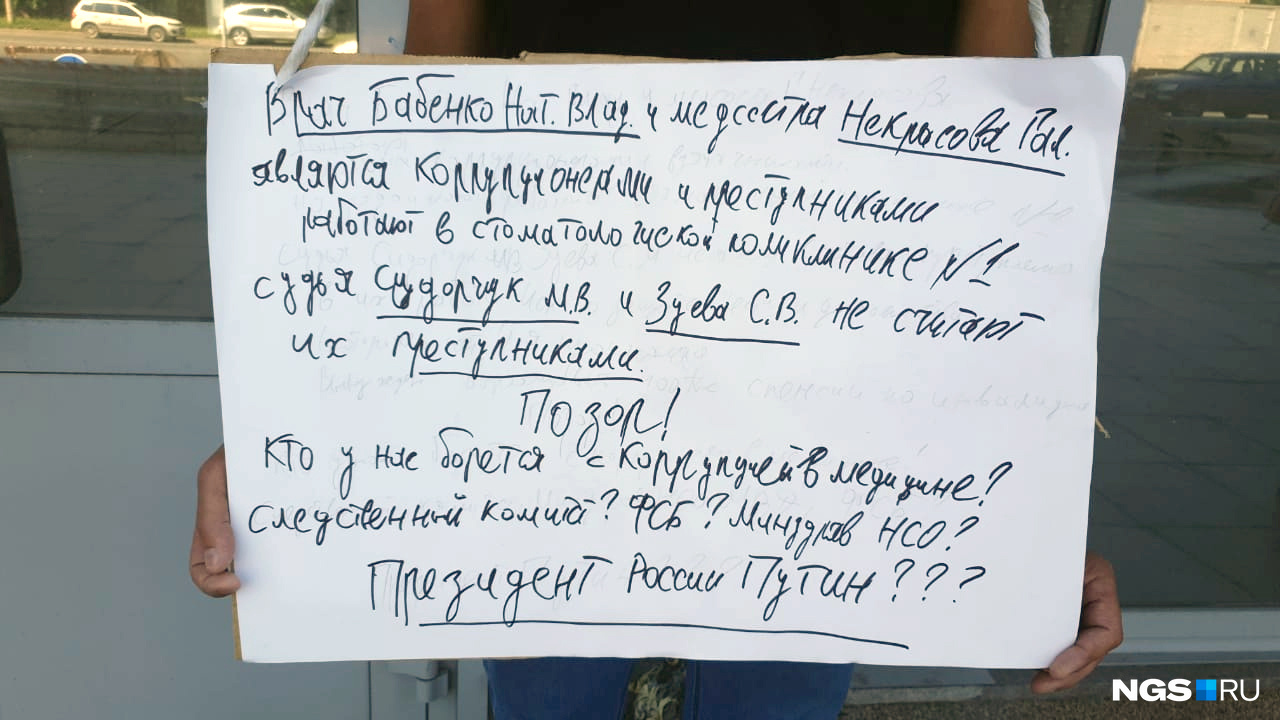 Врач Бабенко Нат. Влад. и медсестра Некрасова Гал.
являются коррупционерами и преступниками
работают в стоматологической поликлинике №1
судья Сидорчук М.В. и Зуева С.В. не считают
их преступниками.
Позор!
Кто у нас борется с коррупцией в медицине?
Следственный комитет? ФСБ? Минздрав НСО?
Президент России Путин???
NGS RU